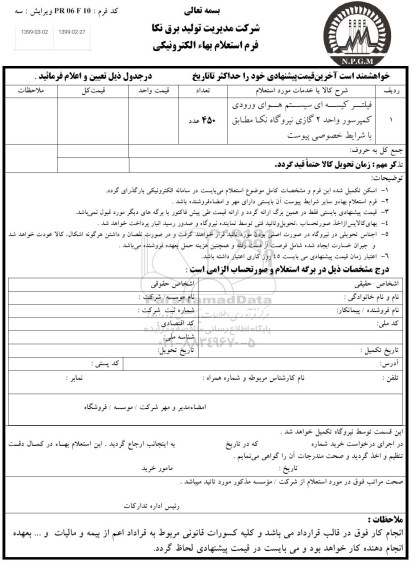 بسمه تعالی
کد فرم : PR 06 F 10 ویرایش : سه
1399-02-27
1399-03-02
شرکت مدیریت تولید برق نکا
فرم استعلام بهاء الکترونیکی
N.P.G.M
خواهشمند است آخرین قیمت پیشنهادی خود را حداکثر تا تاریخ درجدول ذیل تعیین و اعلام فرمائید .
ردیف شرح کالا یا خدمات مورد استعلام تعداد قیمت واحد قیمت کل ملاحظات
۱ فیلتر کیسه ای سیستم هوای ورودی کمپرسور واحد ۲ گازی نیروگاه نکا مطابق با شرایط خصوصی پیوست ۴۵۰ عدد
جمع کل به حروف:
تذکر مهم : زمان تحویل کالا حتماً قید گردد.
توضیحات:
۱- اسکن تکمیل شده این فرم و مشخصات کامل موضوع استعلام می‌بایست در سامانه الکترونیکی بارگذاری گردد.
۲- فرم استعلام بهاءو سایر شرایط پیوست آن بایستی دارای مهر و امضاءفروشنده باشد .
۳- قیمت پیشنهادی بایستی فقط در همین برگ ارائه گردد و ارائه قیمت طی پیش فاکتور یا برگه های دیگر مورد قبول نمی‌باشد.
۴- بهای‌کالاپس‌ازاخذ صورتحساب ،تحویل‌وتائید فنی توسط نماینده نیروگاه و صدور رسید انبار پرداخت خواهد شد .
۵- اجناس تحویلی در نیروگاه در صورت اصلی بودن مورد تائید قرار خواهند گرفت و در صورت نقصان و داشتن هرگونه اشکال، کالا عودت خواهد شد
و جبران خسارت ایجاد شده شامل فرصت از دست رفته و همچنین هزینه حمل بعهده فروشنده می‌باشد .
۶- اعتبار زمان قیمت پیشنهادی می بایست ۴۵ روز کاری اعتبار داشته باشد.
درج مشخصات ذیل در برگه استعلام و صورتحساب الزامی است :
اشخاص حقیقی اشخاص حقوقی
نام و نام خانوادگی : نام موسسه/ شرکت :
نام فروشنده / پیمانکار: شماره ثبت شرکت :
کد ملی: کد اقتصادی :
شناسه ملی:
تاریخ تکمیل : تاریخ تحویل:
آدرس: کد پستی :
تلفن : نام کارشناس مربوطه و شماره همراه : نمابر :
امضاءمدیر و مهر شرکت / موسسه / فروشگاه
این قسمت توسط نیروگاه تکمیل خواهد شد .
در اجرای درخواست خرید شماره که در تاریخ به اینجانب ارجاع گردید . این استعلام بهاء در کمال دقت
تنظیم و اخذ گردید و صحت مندرجات آن را گواهی می‌نمایم .
تاریخ : مامور خرید
صحت مراتب فوق در مورد استعلام از شرکت / مؤسسه مذکور مورد تائید میباشد .
رئیس اداره تدارکات
ملاحظات :
انجام کار فوق در قالب قرارداد می باشد و کلیه کسورات قانونی مربوط به قرارداد اعم از بیمه و مالیات و ... بعهده
انجام دهنده کار خواهد بود و می بایست در قیمت پیشنهادی لحاظ گردد.